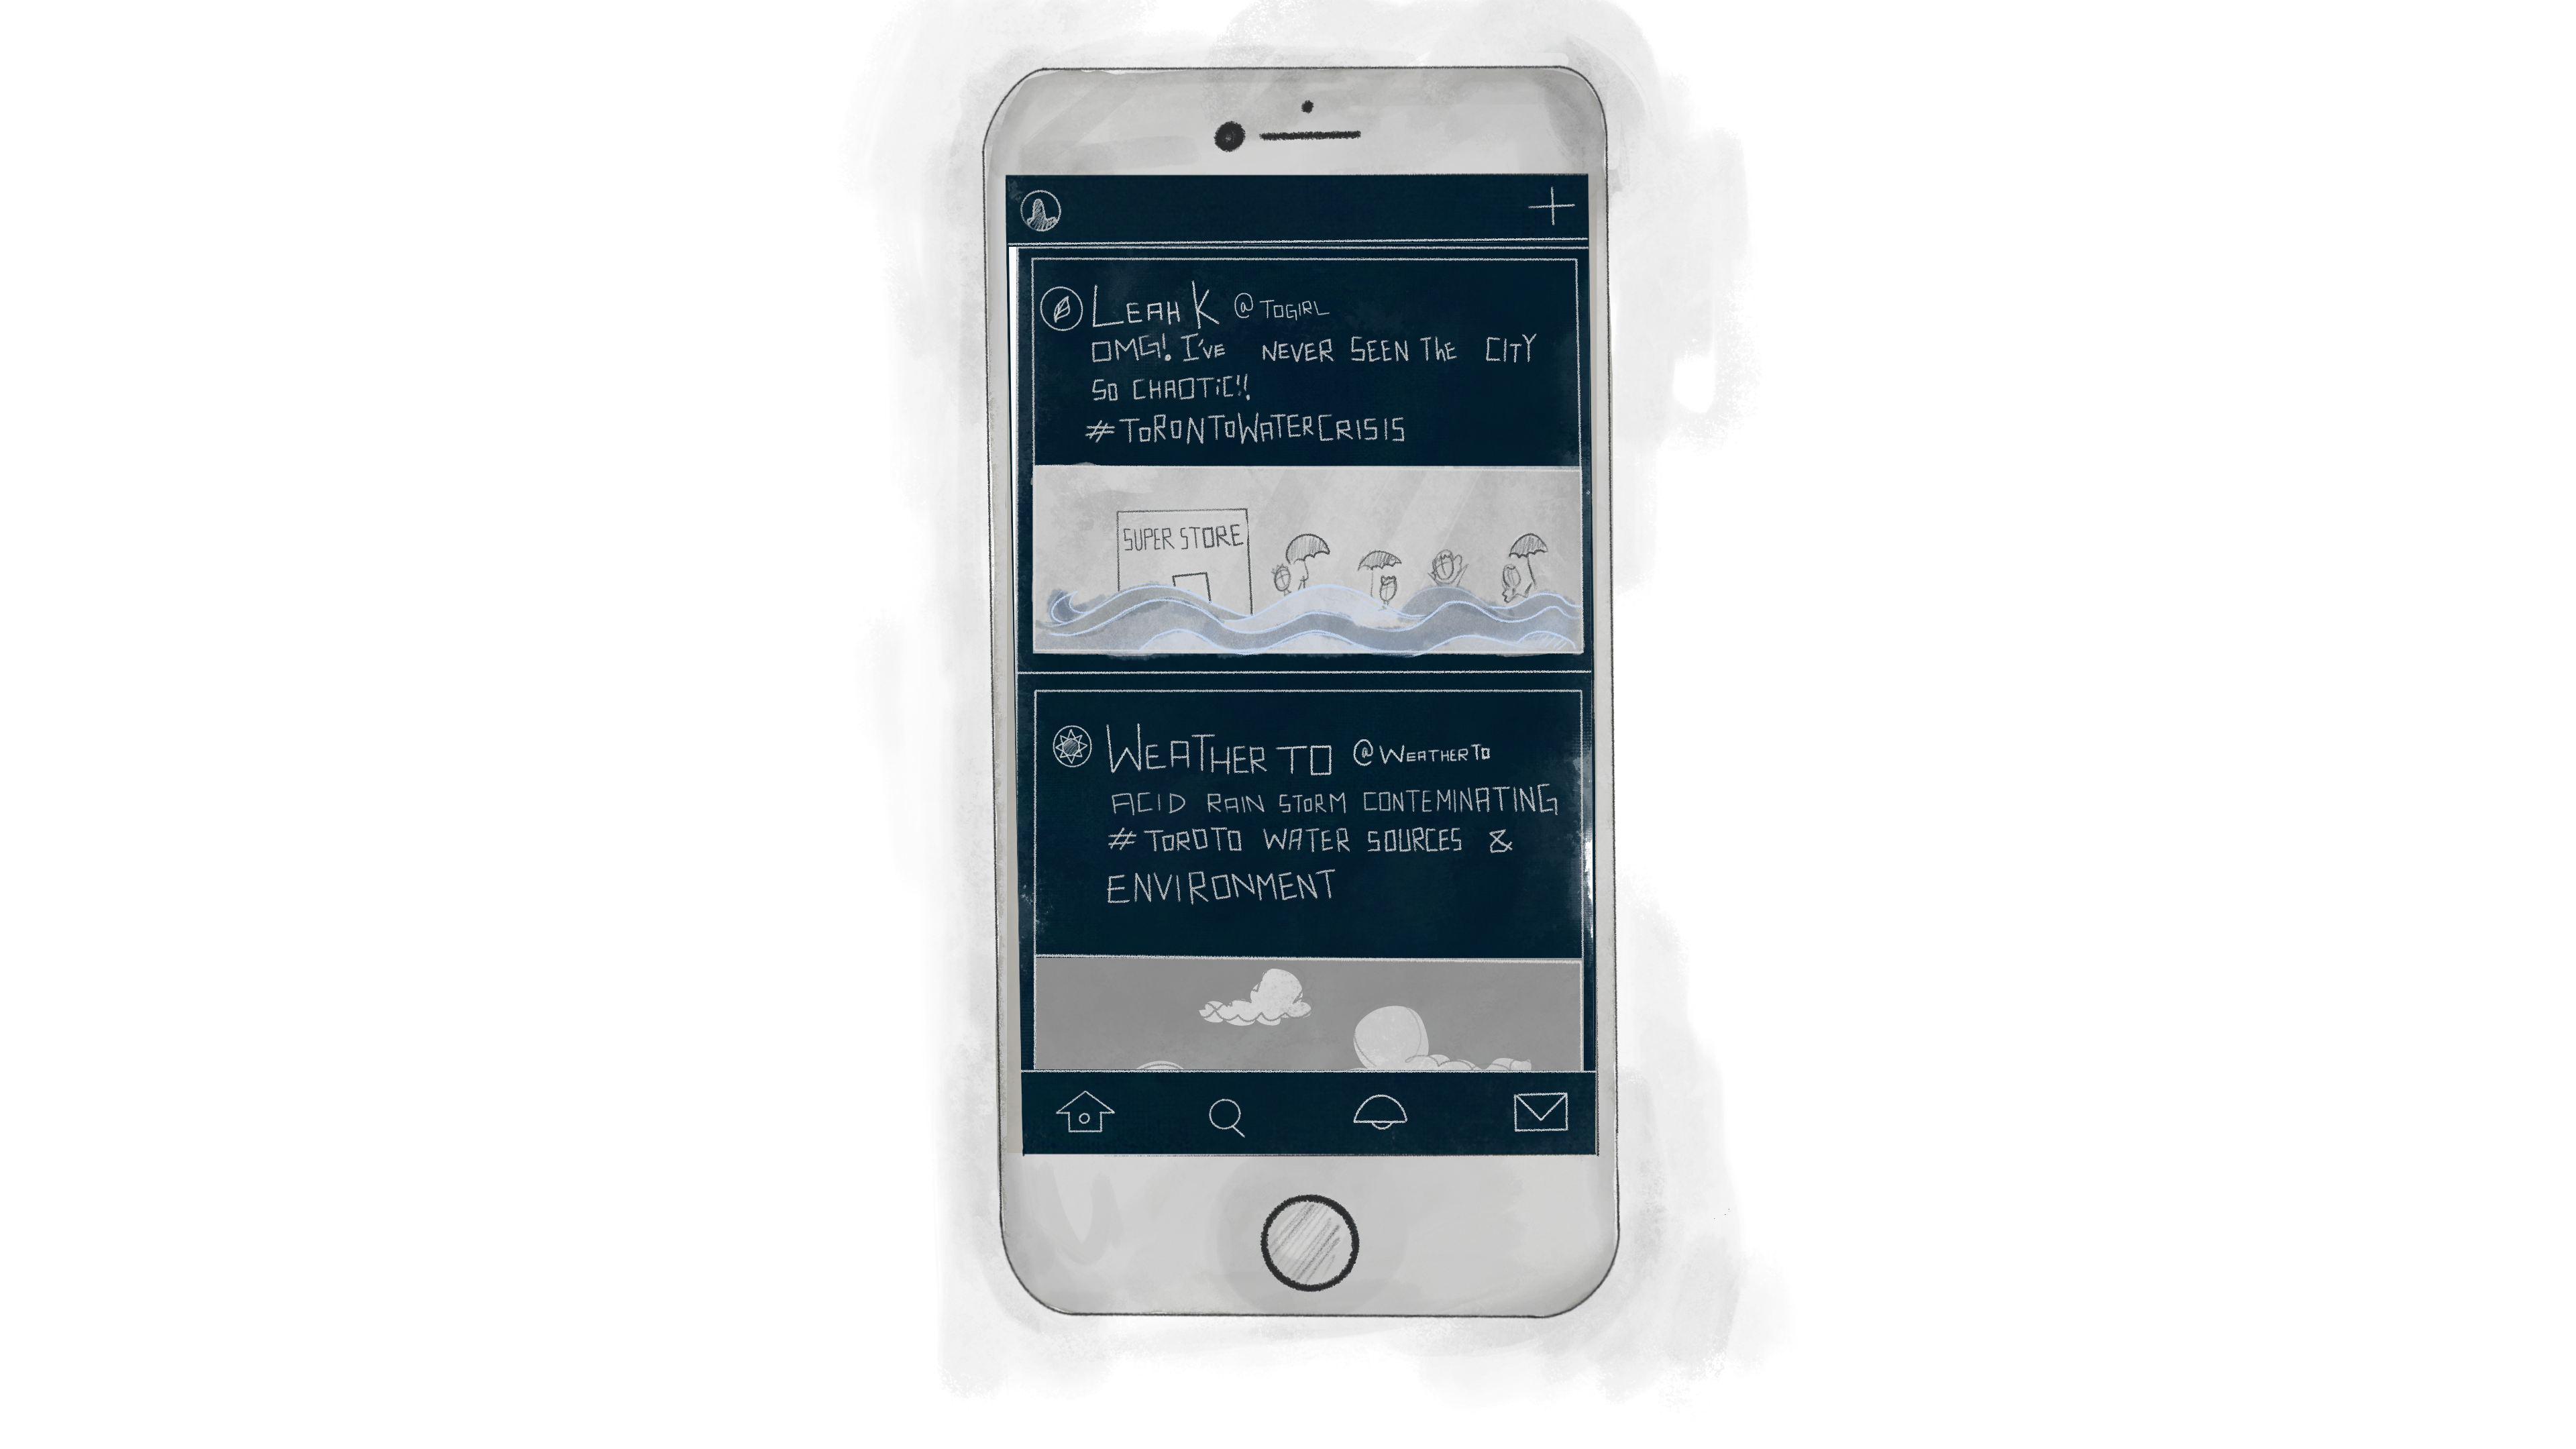 LEAH K @TOGIRL
OMG! I'VE NEVER SEEN THE CITY
SO CHAOTIC!!
#TORONTOWATERCRISIS
SUPER STORE
WEATHER TO @WEATHERTO
ACID RAIN STORM CONTEMINATING
#TOROTO WATER SOURCES &
ENVIRONMENT